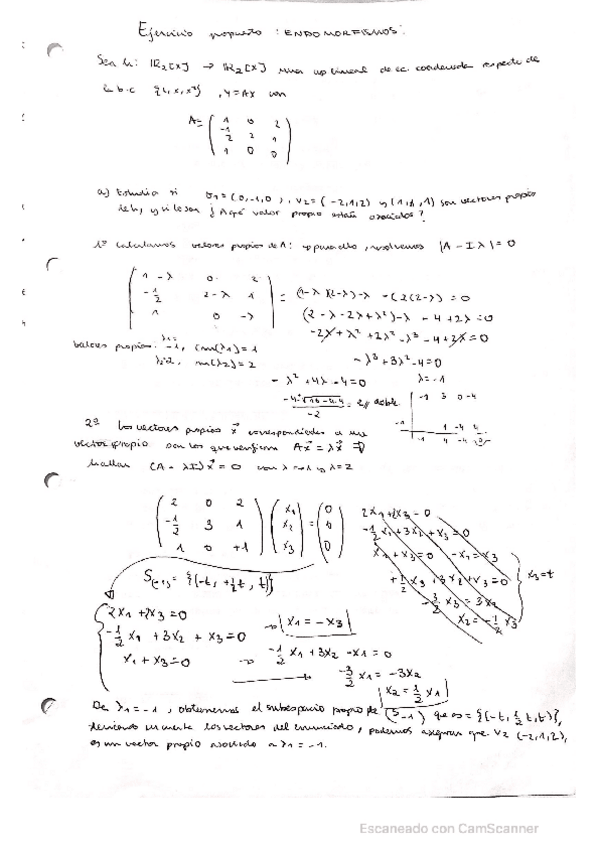 Ejercicio propuesto : ENDOMORFISMOS.
Sea h: ℝ₂[x] → ℝ₂[x] una ap lineal de ec. coordenada respecto de
la b.c {1, x, x²}, Y = AX con
A = ( 1 0 2
-1/2 2 1
1 0 0 )
a) Estudia si v₁ = (0,-1,0), v₂ = (-2,1,2) y (1,1,1) son vectores propios
de h, y si lo son ¿A qué valor propio están asociados?
1º calculamos valores propios de A: para ello, resolvemos |A - Iλ| = 0
( 1-λ 0 2
-1/2 2-λ 1
1 0 -λ ) = (1-λ)(2-λ)·-λ - (2(2-λ)) = 0
(2-λ-2λ+λ²)·-λ - 4+2λ = 0
-2λ+λ²+2λ²-λ³-4+2λ = 0
-λ³+3λ²-4 = 0
valores propios: λ₁= -1, m(λ₁) = 1
λ=2, m(λ₂) = 2
-λ²+4λ-4 = 0
λ = -1
-1 3 0 -4
-1 1 -4 4
-1 4 -4 0
-4±√16-4·4 / -2 = 2 doble
2º los vectores propios x⃗ correspondientes a un
vector propio son los que verifican Ax⃗ = λx⃗ ⇒
hallar (A - λI)x⃗ = 0 con λ=-1 y λ=2
( 2 0 2
-1/2 3 1
1 0 +1 ) ( x₁ x₂ x₃ ) = ( 0 0 0 )
2x₁+2x₃ = 0
-1/2 x₁+3x₂+x₃ = 0
x₁+x₃ = 0 -x₁ = x₃
+1/2 x₃+3x₂+x₃ = 0
-3/2 x₃ = 3x₂
x₂ = -1/2 x₃
x₃ = t
S(-1) = {(-t, +1/2 t, t)}
2x₁+2x₃ = 0 → x₁ = -x₃
-1/2 x₁ + 3x₂ + x₃ = 0
x₁ + x₃ = 0 → -1/2 x₁ + 3x₂ - x₁ = 0
-3/2 x₁ = -3x₂
x₂ = 1/2 x₁
De λ₁ = -1, obtenemos el subespacio propio de (S-1) que es = {(-t, 1/2 t, t)},
teniendo en mente los vectores del enunciado, podemos asegurar que v₂ (-2,1,2),
es un vector propio asociado a λ₁ = -1.
Escaneado con CamScanner